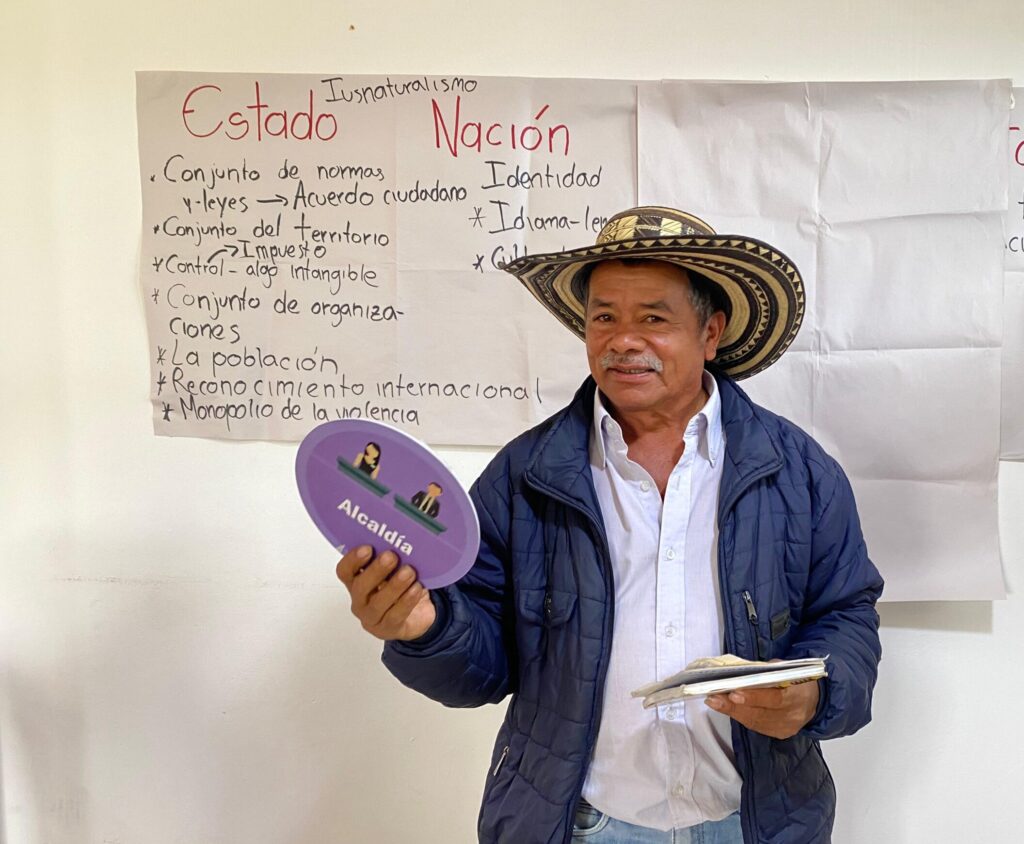 Iusnaturalismo
Estado
Nación
Conjunto de normas
y-leyes → Acuerdo ciudadano
* Conjunto del territorio
Impuesto
* Control - algo intangible
* Conjunto de organiza-
ciones
* La población
* Reconocimiento internacional
* Monopolio de la violencia
Identidad
* Idiama-
Alcaldía